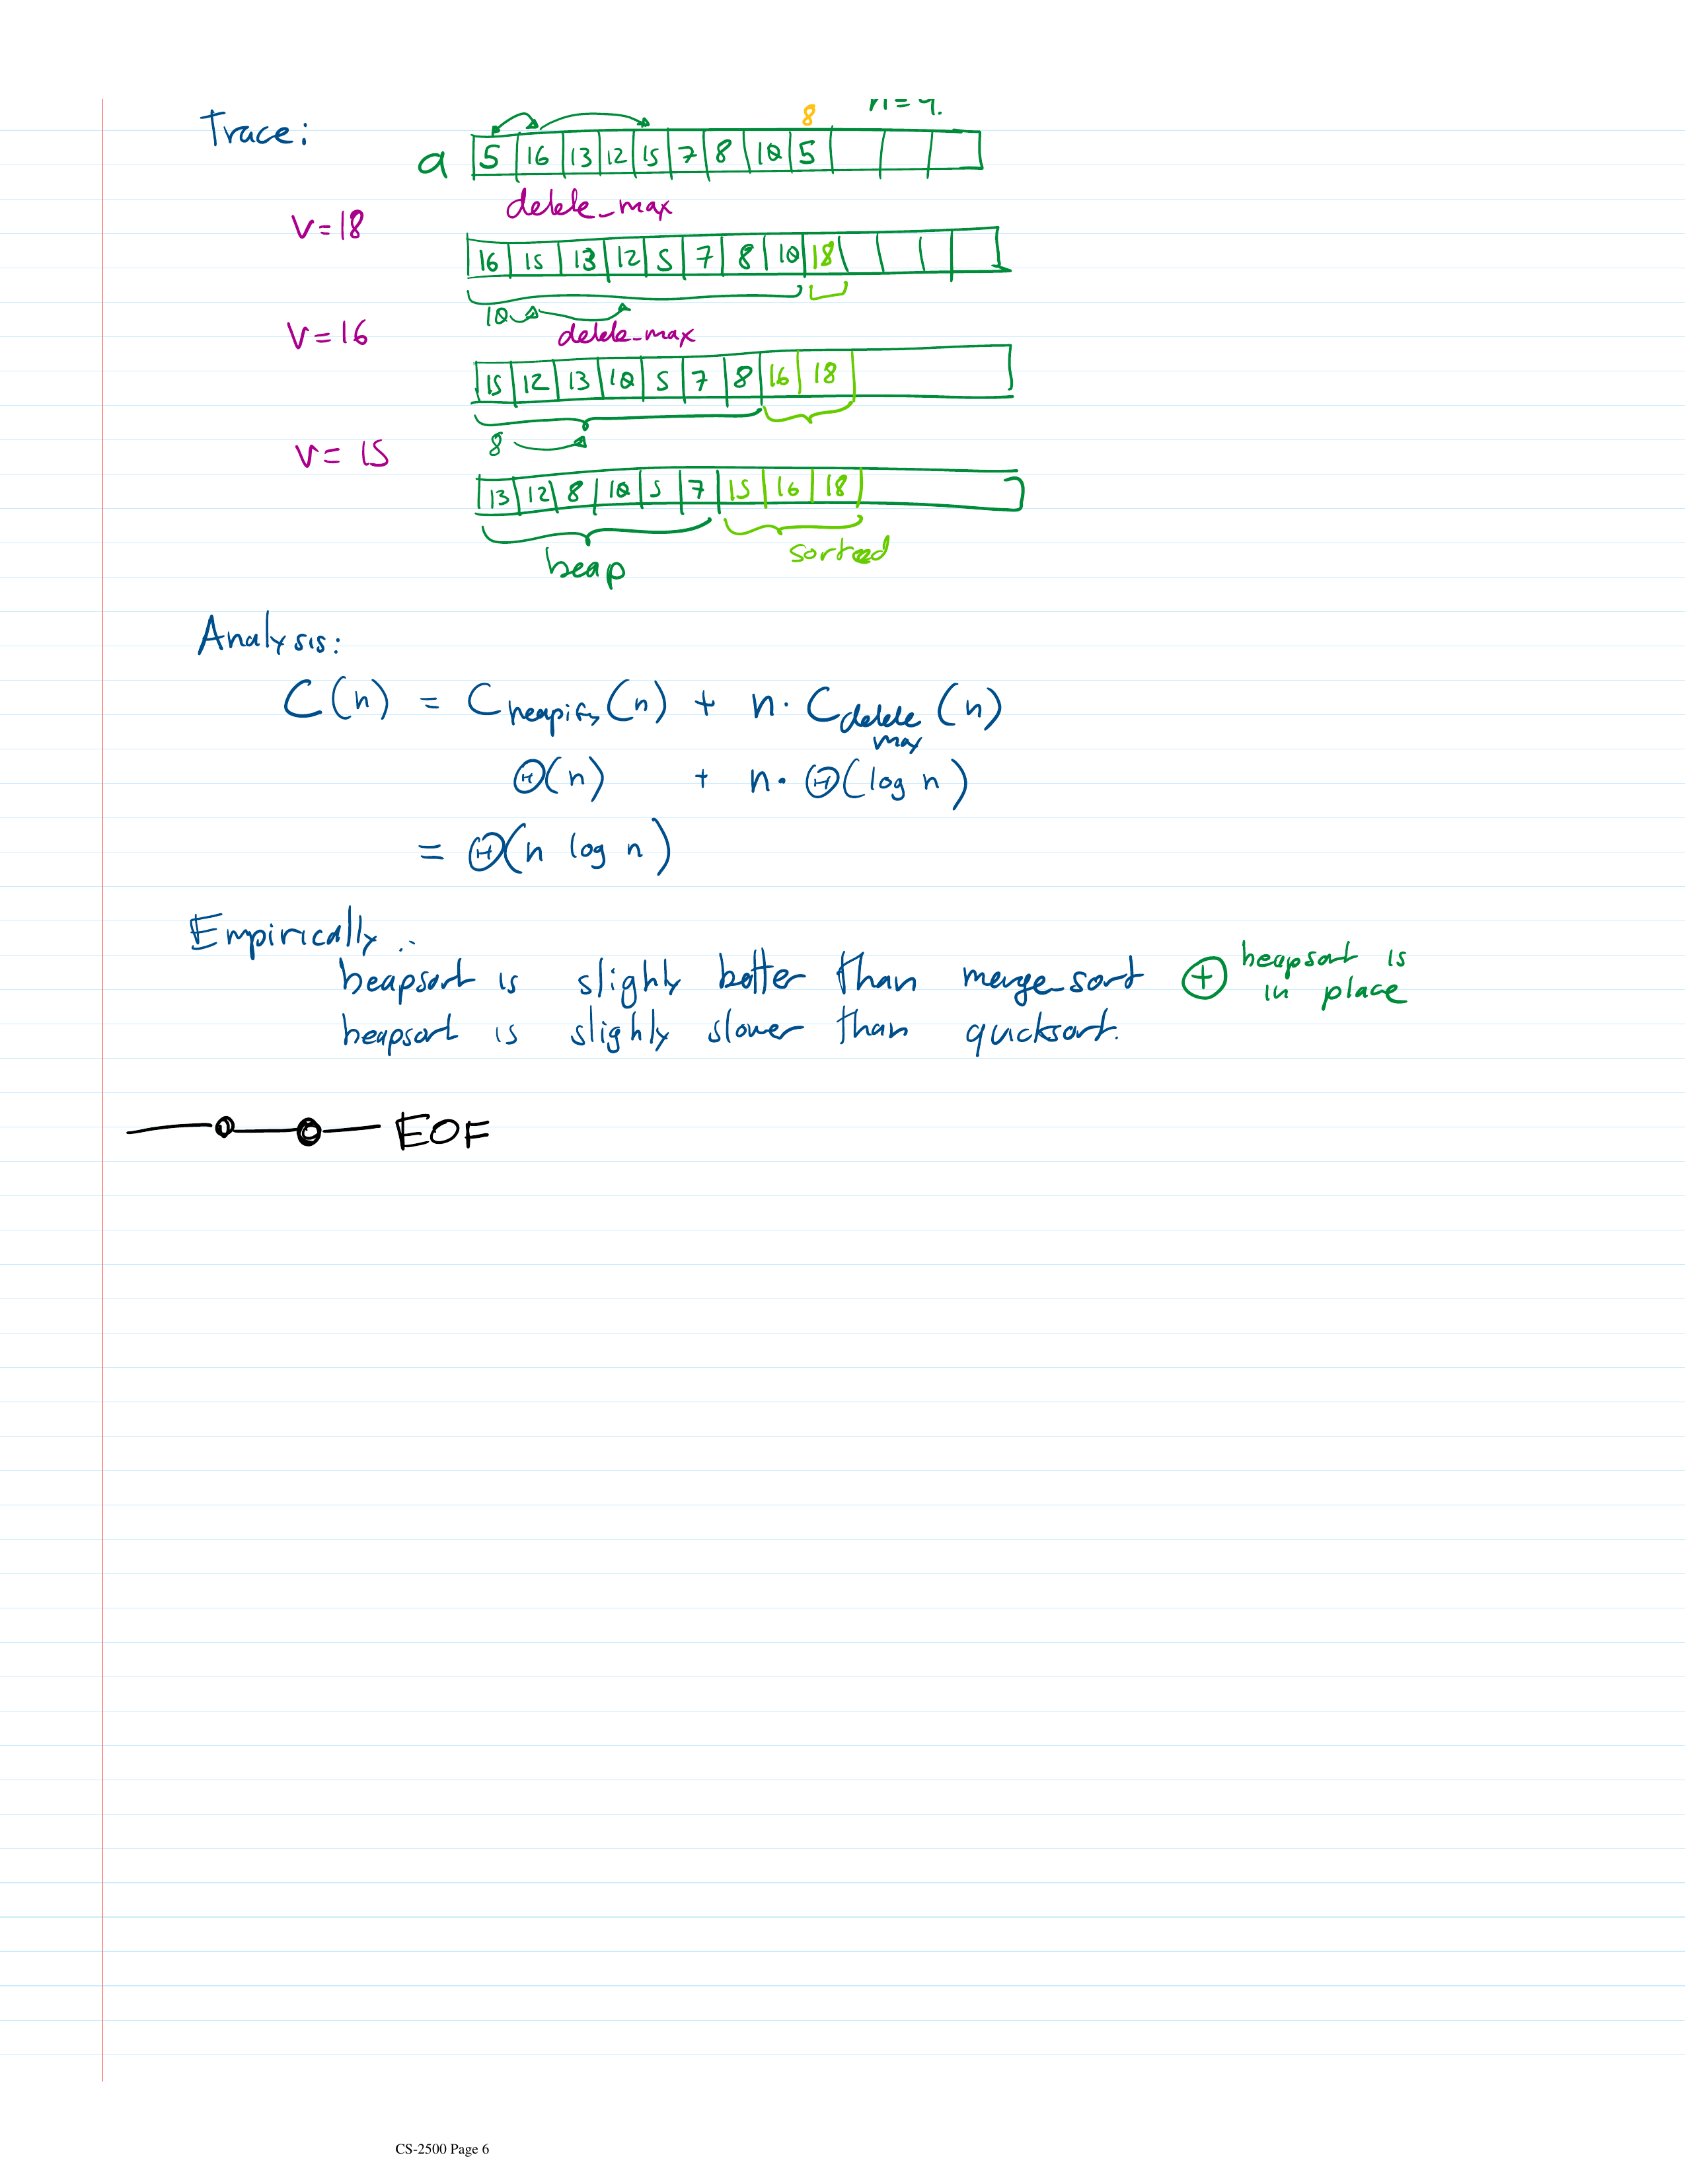 8
Trace:
a 5 16 13 12 15 7 8 10 5
delete_max
V=18
16 15 13 12 5 7 8 10 18
10
V=16
delete_max
15 12 13 10 5 7 8 16 18
8
V=15
13 12 8 10 5 7 15 16 18
heap sorted
Analysis:
C(n) = C heapify (n) + n · C delete max (n)
Θ(n) + n · Θ(log n)
= Θ(n log n)
Empirically:
heapsort is slighly better than merge_sort ⊕ heapsort is in place
heapsort is slighly slower than quicksort.
EOF
CS-2500 Page 6